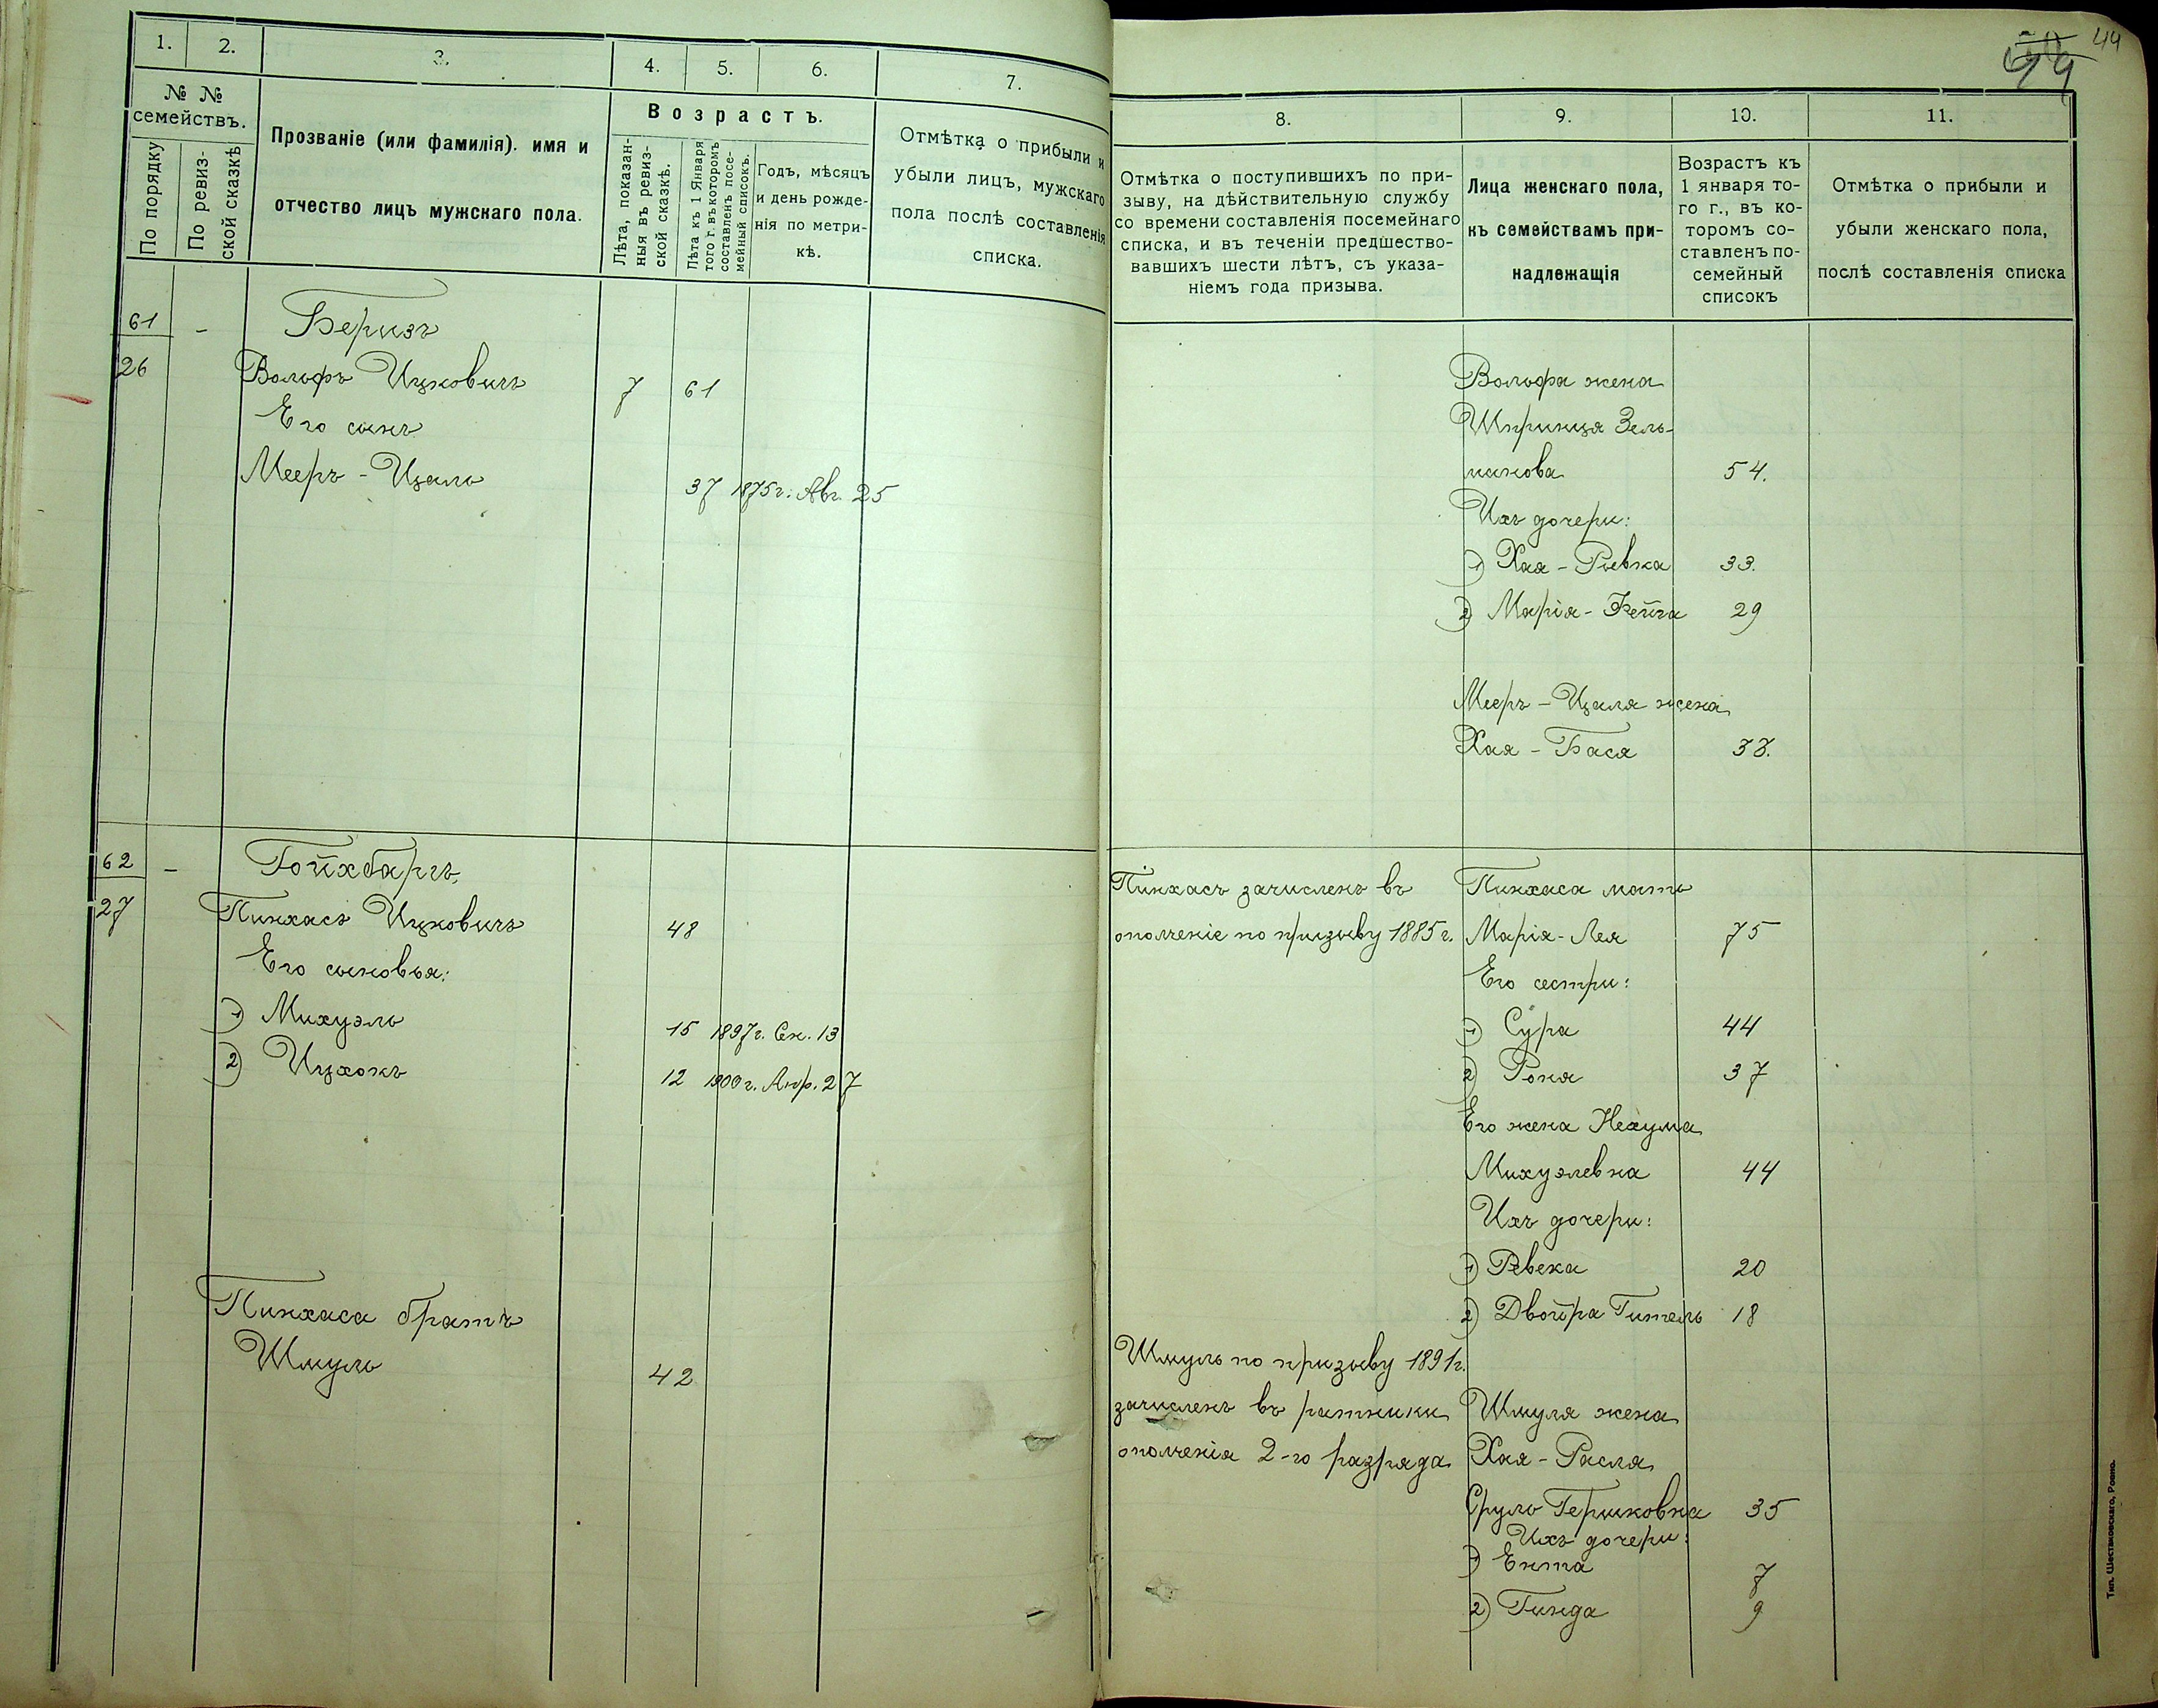 1.
2.
3.
4.
5.
6.
7.
№ №
семействъ.
По порядку
По ревиз-
ской сказкѣ
Прозваніе (или фамилія). имя и
отчество лицъ мужскаго пола.
Возрастъ.
Лѣта, показан-
ныя въ ревиз-
ской сказкѣ.
Лѣта къ 1 Января
того г. въ которомъ
составленъ посе-
мейный списокъ.
Годъ, мѣсяцъ
и день рожде-
нія по метри-
кѣ.
Отмѣтка о прибыли и
убыли лицъ, мужскаго
пола послѣ составленія
списка.
61 - Беризъ
26 Вольфъ Ицковичъ 7 61
Его сынъ
Мееръ - Ицаль 37 1875 г. Авг. 25
62 - Гойхбаргъ,
27 Пинхасъ Ицковичъ 48
Его сыновья:
1) Михуэль 15 1897 г. Сен. 13
2) Ицхокъ 12 1900 г. Апр. 27
Пинхаса братъ
Шмуль 42
44
8.
9.
10.
11.
Отмѣтка о поступившихъ по при-
зыву, на дѣйствительную службу
со времени составленія посемейнаго
списка, и въ теченіи предшество-
вавшихъ шести лѣтъ, съ указа-
ніемъ года призыва.
Лица женскаго пола,
къ семействамъ при-
надлежащія
Возрастъ къ
1 января то-
го г., въ ко-
торомъ со-
ставленъ по-
семейный
списокъ
Отмѣтка о прибыли и
убыли женскаго пола,
послѣ составленія списка
Вольфа жена
Шпринця Зель-
манова 54.
Ихъ дочери:
1) Хая - Ривка 33.
2) Марія - Фейга 29
Мееръ - Ицаля жена
Хая - Бася 33.
Пинхасъ зачисленъ въ Пинхаса мать
ополченіе по призыву 1885 г. Марія - Лея 75
Его сестри:
1) Сура 44
2) Роня 37
Его жена Нехума
Михуэлевна 44
Ихъ дочери:
1) Ревека 20
2) Двойра Гитель 18
Шмуль по призыву 1891 г.
зачисленъ въ ратники Шмуля жена
ополченія 2-го разряда Хая - Расля
Сруль Гершковна 35
Ихъ дочери:
1) Ента 7
2) Гинда 9
Тип. Шестаковскаго, Ровно.